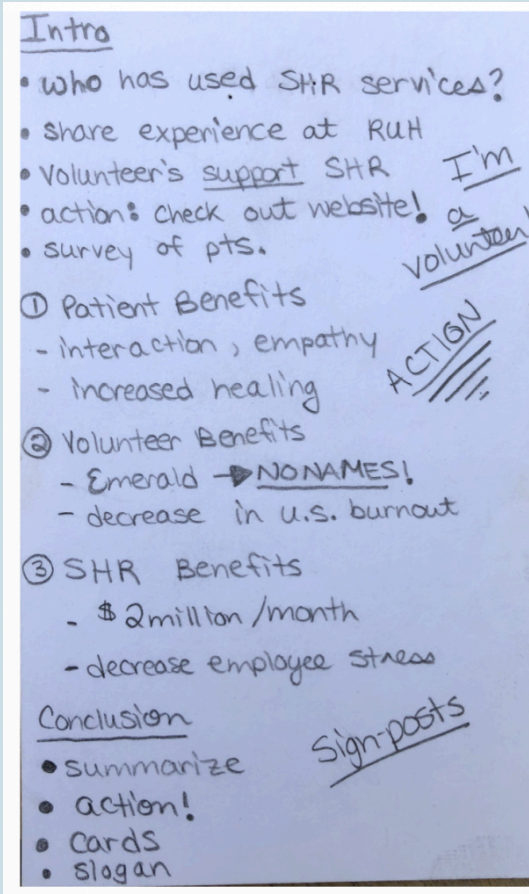 Intro
• who has used SHR services?
• share experience at RUH
• Volunteer's support SHR
• action: check out website!
• survey of pts.
I'm
a
volunteer!
① Patient Benefits
- interaction, empathy
- increased healing
ACTION
② Volunteer Benefits
- Emerald → NO NAMES!
- decrease in U.S. burnout
③ SHR Benefits
- $2million/month
- decrease employee stress
Conclusion
• summarize
• action!
• cards
• slogan
Sign-posts